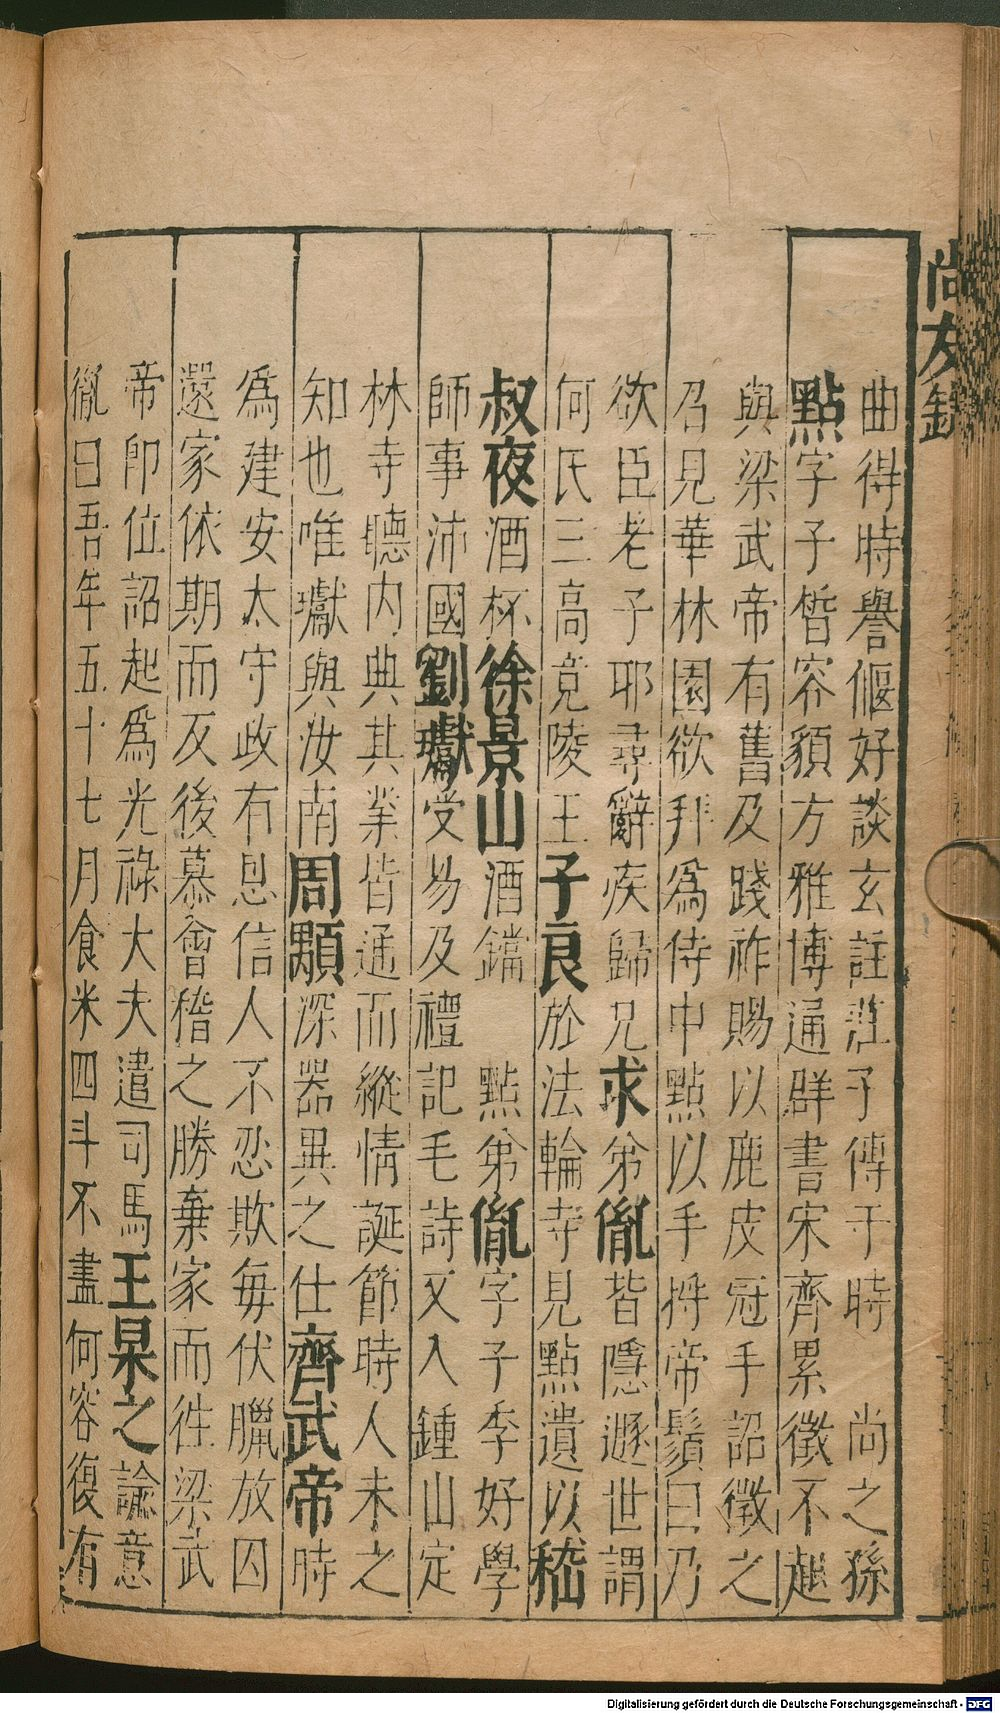 尚友錄
曲得時譽偃好談玄註莊子傳于時　尚之孫
點字子晳容貌方雅博通群書宋齊累徵不起
與梁武帝有舊及踐祚賜以鹿皮冠手詔徵之
召見華林園欲拜爲侍中點以手捋帝鬚曰乃
欲臣老子耶尋辭疾歸兄求弟胤皆隱遯世謂
何氏三高竟陵王子良於法輪寺見點遺以嵇
叔夜酒杯徐景山酒鐺　點弟胤字子季好學
師事沛國劉瓛受易及禮記毛詩又入鍾山定
林寺聽內典其業皆通而縱情誕節時人未之
知也唯瓛與汝南周顒深器異之仕齊武帝時
爲建安太守政有恩信人不忍欺每伏臘放囚
還家依期而反後慕會稽之勝棄家而徃梁武
帝卽位詔起爲光祿大夫遣司馬王杲之諭意
胤曰吾年五十七月食米四斗不盡何容復有
Digitalisierung gefördert durch die Deutsche Forschungsgemeinschaft - DFG